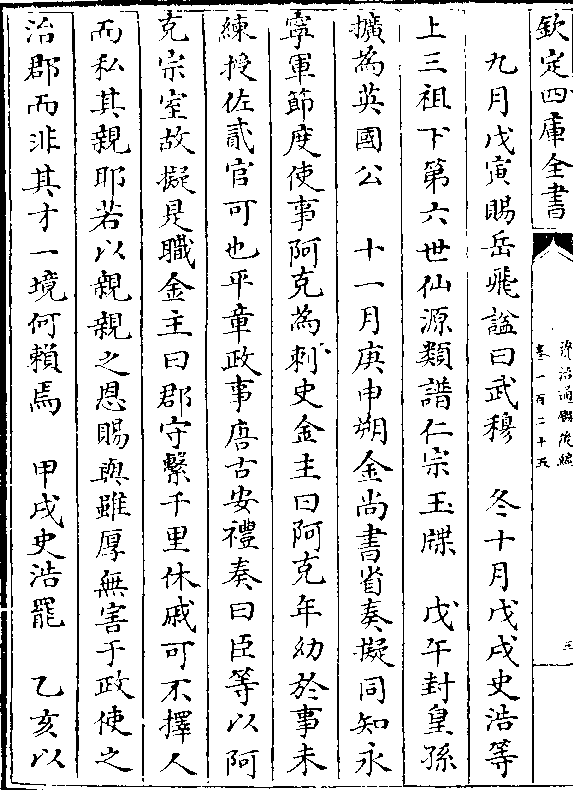 欽定四庫全書
資治通鑑後編
卷一百二十五
三
九月戊寅賜岳飛諡曰武穆　冬十月戊戌史浩等
上三祖下第六世仙源類譜仁宗玉牒　戊午封皇孫
擴為英國公　十一月庚申朔金尚書省奏擬同知永
寧軍節度使事阿克為刺史金主曰阿克年幼於事未
練授佐貳官可也平章政事唐古安禮奏曰臣等以阿
克宗室故擬是職金主曰郡守繫千里休戚可不擇人
而私其親耶若以親親之恩賜與雖厚無害于政使之
治郡而非其才一境何賴焉　甲戌史浩罷　乙亥以